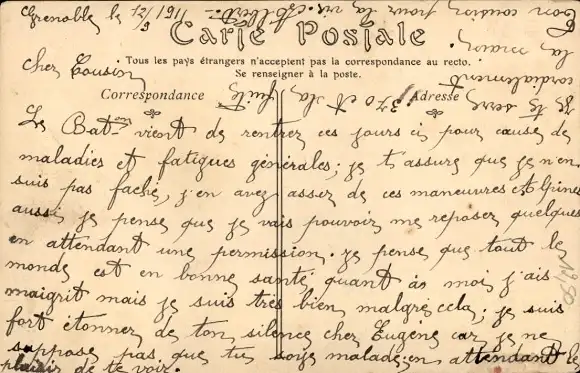 Grenoble le 12/9 1911
Carte Postale
Tous les pays étrangers n'acceptent pas la correspondance au recto.
Se renseigner à la poste.
Correspondance
Adresse
Cher Cousin
Le Bat-on vient de rentrer ces jours ci pour cause de
maladies et fatigues générales; je t'assure que je n'en
suis pas faché, j'en avez assez de ces maneuvres Alpines
aussi je pense que je vais pouvoir me reposer quelques
en attendant une permission. je pense que tout le
monde est en bonne santé, quant às moi j'ais
maigrit mais je suis très bien, malgré cela; je suis
fort étonner de ton silence cher Eugène car je ne
suppose pas que tu soye malade; en attendant le
plaisir de te voir.
je te serre
cordialement
la
Ton cousin pour la vis. Albert.